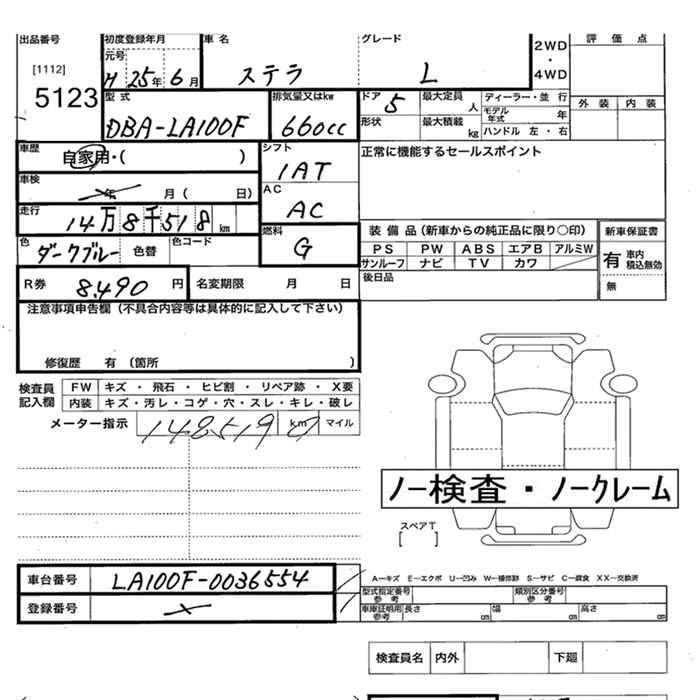 出品番号 初度登録年月 車名 グレード 評価点
[1112] 元号 H 25年 6月 ステラ L 2WD・4WD
5123 型式 排気量又はkw ドア 最大定員 ディーラー・並行 外装 内装
DBA-LA100F 660cc 5 人 モデル年式 年
形状 最大積載 kg ハンドル 左・右
車歴 自家用・( ) シフト 1AT 正常に機能するセールスポイント
車検 年 月( 日) AC AC
走行 14万8千518 km 燃料 G 装備品(新車からの純正品に限り○印) 新車保証書
色 ダークブルー 色替 色コード PS PW ABS エアB アルミW 有 車内積込無効
サンルーフ ナビ TV カワ 無
R券 8,490円 名変期限 月 日 後日品
注意事項申告欄(不具合内容等は具体的に記入して下さい)
修復歴 有 (箇所 )
検査員記入欄 FW キズ・飛石・ヒビ割・リペア跡・X要
内装 キズ・汚レ・コゲ・穴・スレ・キレ・破レ
メーター指示 148519 km マイル
ノー検査・ノークレーム
スペアT
[ ]
車台番号 LA100F-0036554 A－キズ E－エクボ U－凹み W－補修跡 S－サビ C－腐食 XX－交換済
型式指定番号 参考 類別区分番号 参考
登録番号 車庫証明用 参考 長さ cm 幅 cm 高さ cm
検査員名 内外 下廻